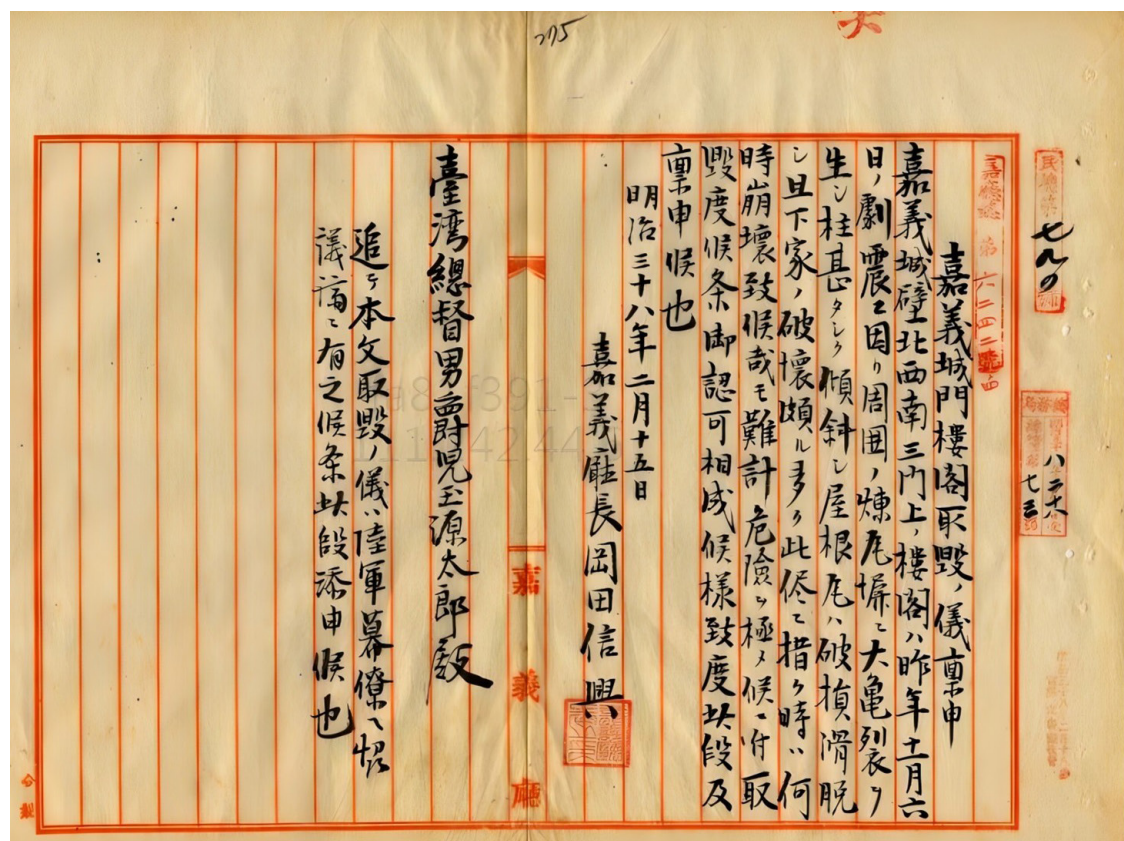 嘉義城門樓閣取毀ノ儀稟申
嘉義城壁北西南三門上ノ樓閣ハ昨年十一月六
日ノ劇震ニ因リ周囲ノ煉瓦塀ニ大亀裂ヲ
生シ柱甚タシク傾斜シ屋根瓦ハ破損滑脱
シ且下家ノ破壞頗ル多ク此侭ニ措ク時ハ何
時崩壞致候哉モ難計危險ヲ極メ候ニ付取
毀度候条御認可相成候様致度此段及
稟申候也
明治三十八年二月十五日
嘉義廳長岡田信興
臺湾總督男爵児玉源太郎殿
追テ本文取毀ノ儀ハ陸軍幕僚ヘ
議済ニ有之候条此段添申候也
嘉義廳
第六二四二號
七九〇
275